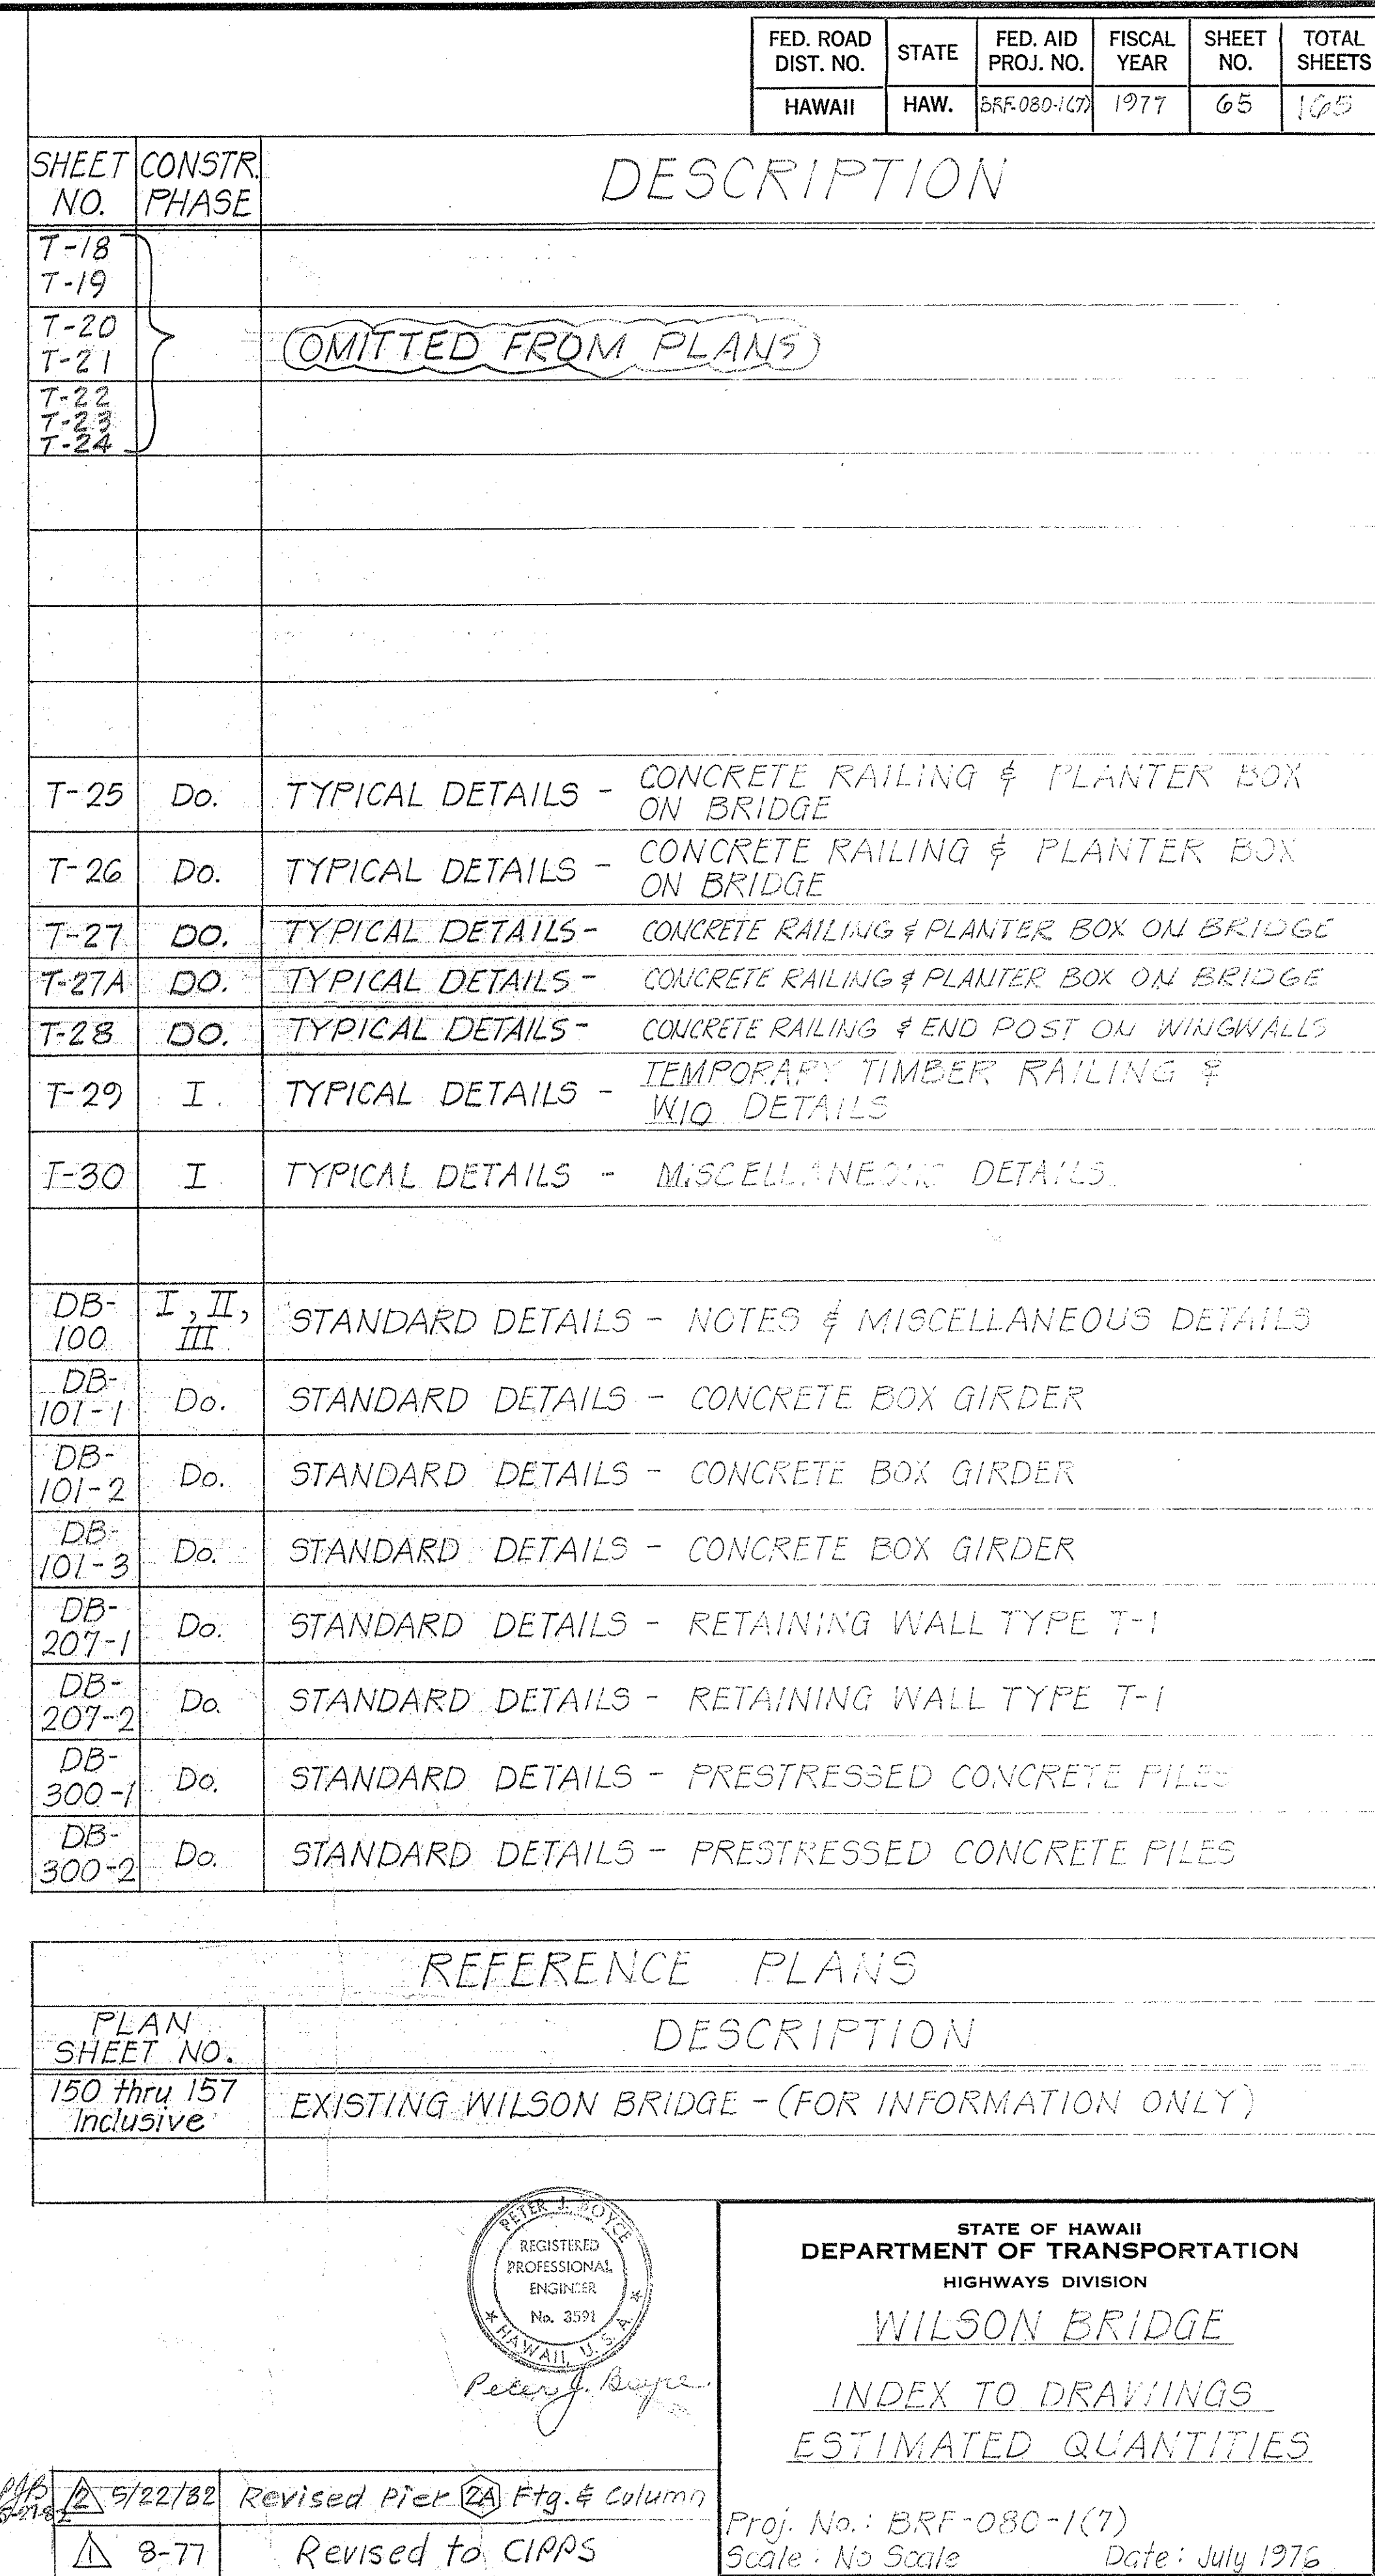 FED. ROAD DIST. NO. STATE FED. AID PROJ. NO. FISCAL YEAR SHEET NO. TOTAL SHEETS
HAWAII HAW. BRF-080-1(7) 1977 65 165
SHEET NO. CONSTR. PHASE DESCRIPTION
T-18
T-19
T-20
T-21
(OMITTED FROM PLANS)
T-22
T-23
T-24
T-25 Do. TYPICAL DETAILS - CONCRETE RAILING & PLANTER BOX
ON BRIDGE
T-26 Do. TYPICAL DETAILS - CONCRETE RAILING & PLANTER BOX
ON BRIDGE
T-27 DO. TYPICAL DETAILS - CONCRETE RAILING & PLANTER BOX ON BRIDGE
T-27A DO. TYPICAL DETAILS - CONCRETE RAILING & PLANTER BOX ON BRIDGE
T-28 DO. TYPICAL DETAILS - CONCRETE RAILING & END POST ON WINGWALLS
T-29 I TYPICAL DETAILS - TEMPORARY TIMBER RAILING &
W10 DETAILS
T-30 I TYPICAL DETAILS - MISCELLANEOUS DETAILS
DB-100 I, II, III STANDARD DETAILS - NOTES & MISCELLANEOUS DETAILS
DB-101-1 Do. STANDARD DETAILS - CONCRETE BOX GIRDER
DB-101-2 Do. STANDARD DETAILS - CONCRETE BOX GIRDER
DB-101-3 Do. STANDARD DETAILS - CONCRETE BOX GIRDER
DB-207-1 Do. STANDARD DETAILS - RETAINING WALL TYPE T-1
DB-207-2 Do. STANDARD DETAILS - RETAINING WALL TYPE T-1
DB-300-1 Do. STANDARD DETAILS - PRESTRESSED CONCRETE PILES
DB-300-2 Do. STANDARD DETAILS - PRESTRESSED CONCRETE PILES
REFERENCE PLANS
PLAN SHEET NO. DESCRIPTION
150 thru 157 Inclusive EXISTING WILSON BRIDGE - (FOR INFORMATION ONLY)
PETER J. BOYCE
REGISTERED
PROFESSIONAL
ENGINEER
No. 3591
HAWAII, U.S.A.
Peter J. Boyce
STATE OF HAWAII
DEPARTMENT OF TRANSPORTATION
HIGHWAYS DIVISION
WILSON BRIDGE
INDEX TO DRAWINGS
ESTIMATED QUANTITIES
Proj. No.: BRF-080-1(7)
Scale: No Scale Date: July 1976
PJB
2 5/22/82 Revised Pier 2A Ftg. & Column
1 8-77 Revised to CIPPS